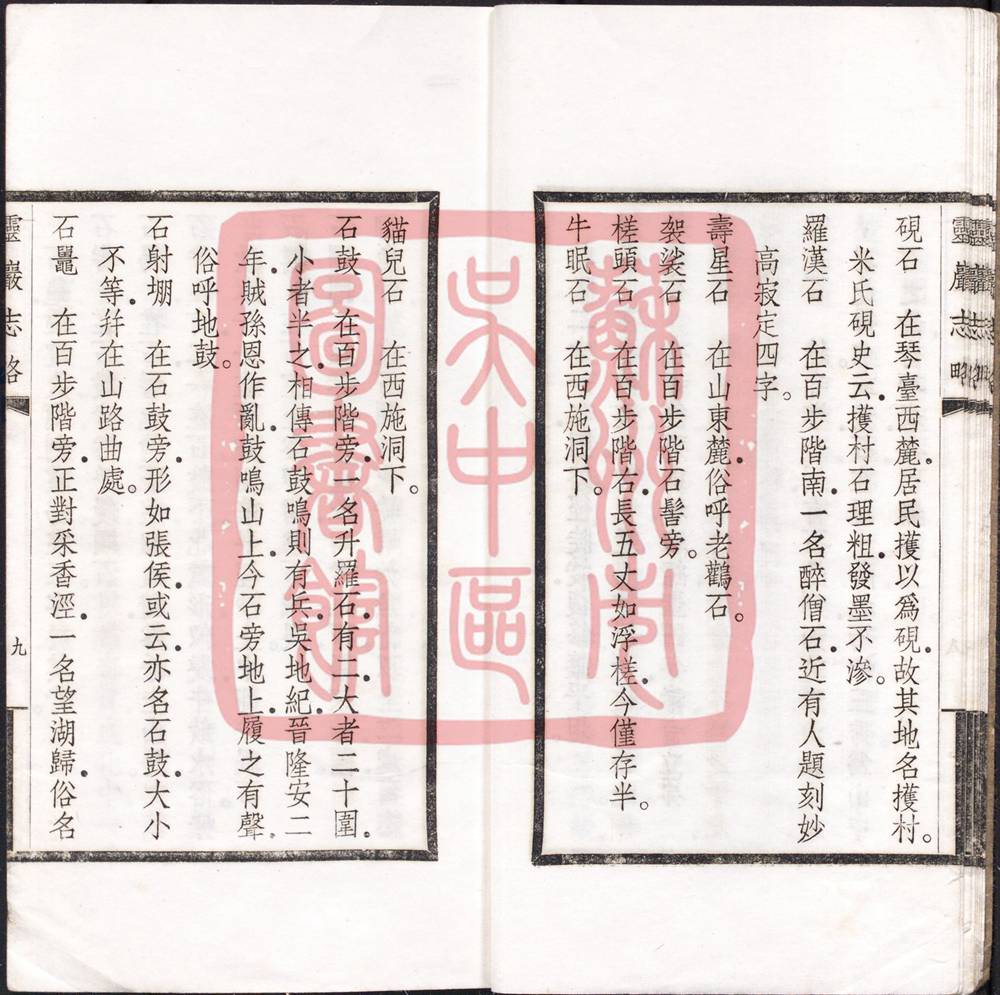 靈巖志略
硯石　在琴臺西麓．居民擭以爲硯．故其地名擭村。
米氏硯史云．擭村石理粗．發墨不滲。
羅漢石　在百步階南．一名醉僧石．近有人題刻妙
高寂定四字。
壽星石　在山東麓．俗呼老鸛石。
袈裟石　在百步階石髻旁。
槎頭石　在百步階右．長五丈如浮槎．今僅存半。
牛眠石　在西施洞下。
貓兒石　在西施洞下。
石鼓　在百步階旁．一名升羅石．有二．大者二十圍．
小者半之．相傳石鼓鳴則有兵．吳地紀．晉隆安二
年．賊孫恩作亂．鼓鳴山上．今石旁地上．履之有聲．
俗呼地鼓。
石射堋　在石鼓旁．形如張侯．或云．亦名石鼓．大小
不等．幷在山路曲處。
石鼉　在百步階旁．正對采香涇．一名望湖歸．俗名
靈巖志略
九
蘇州市
吳中區
圖書館